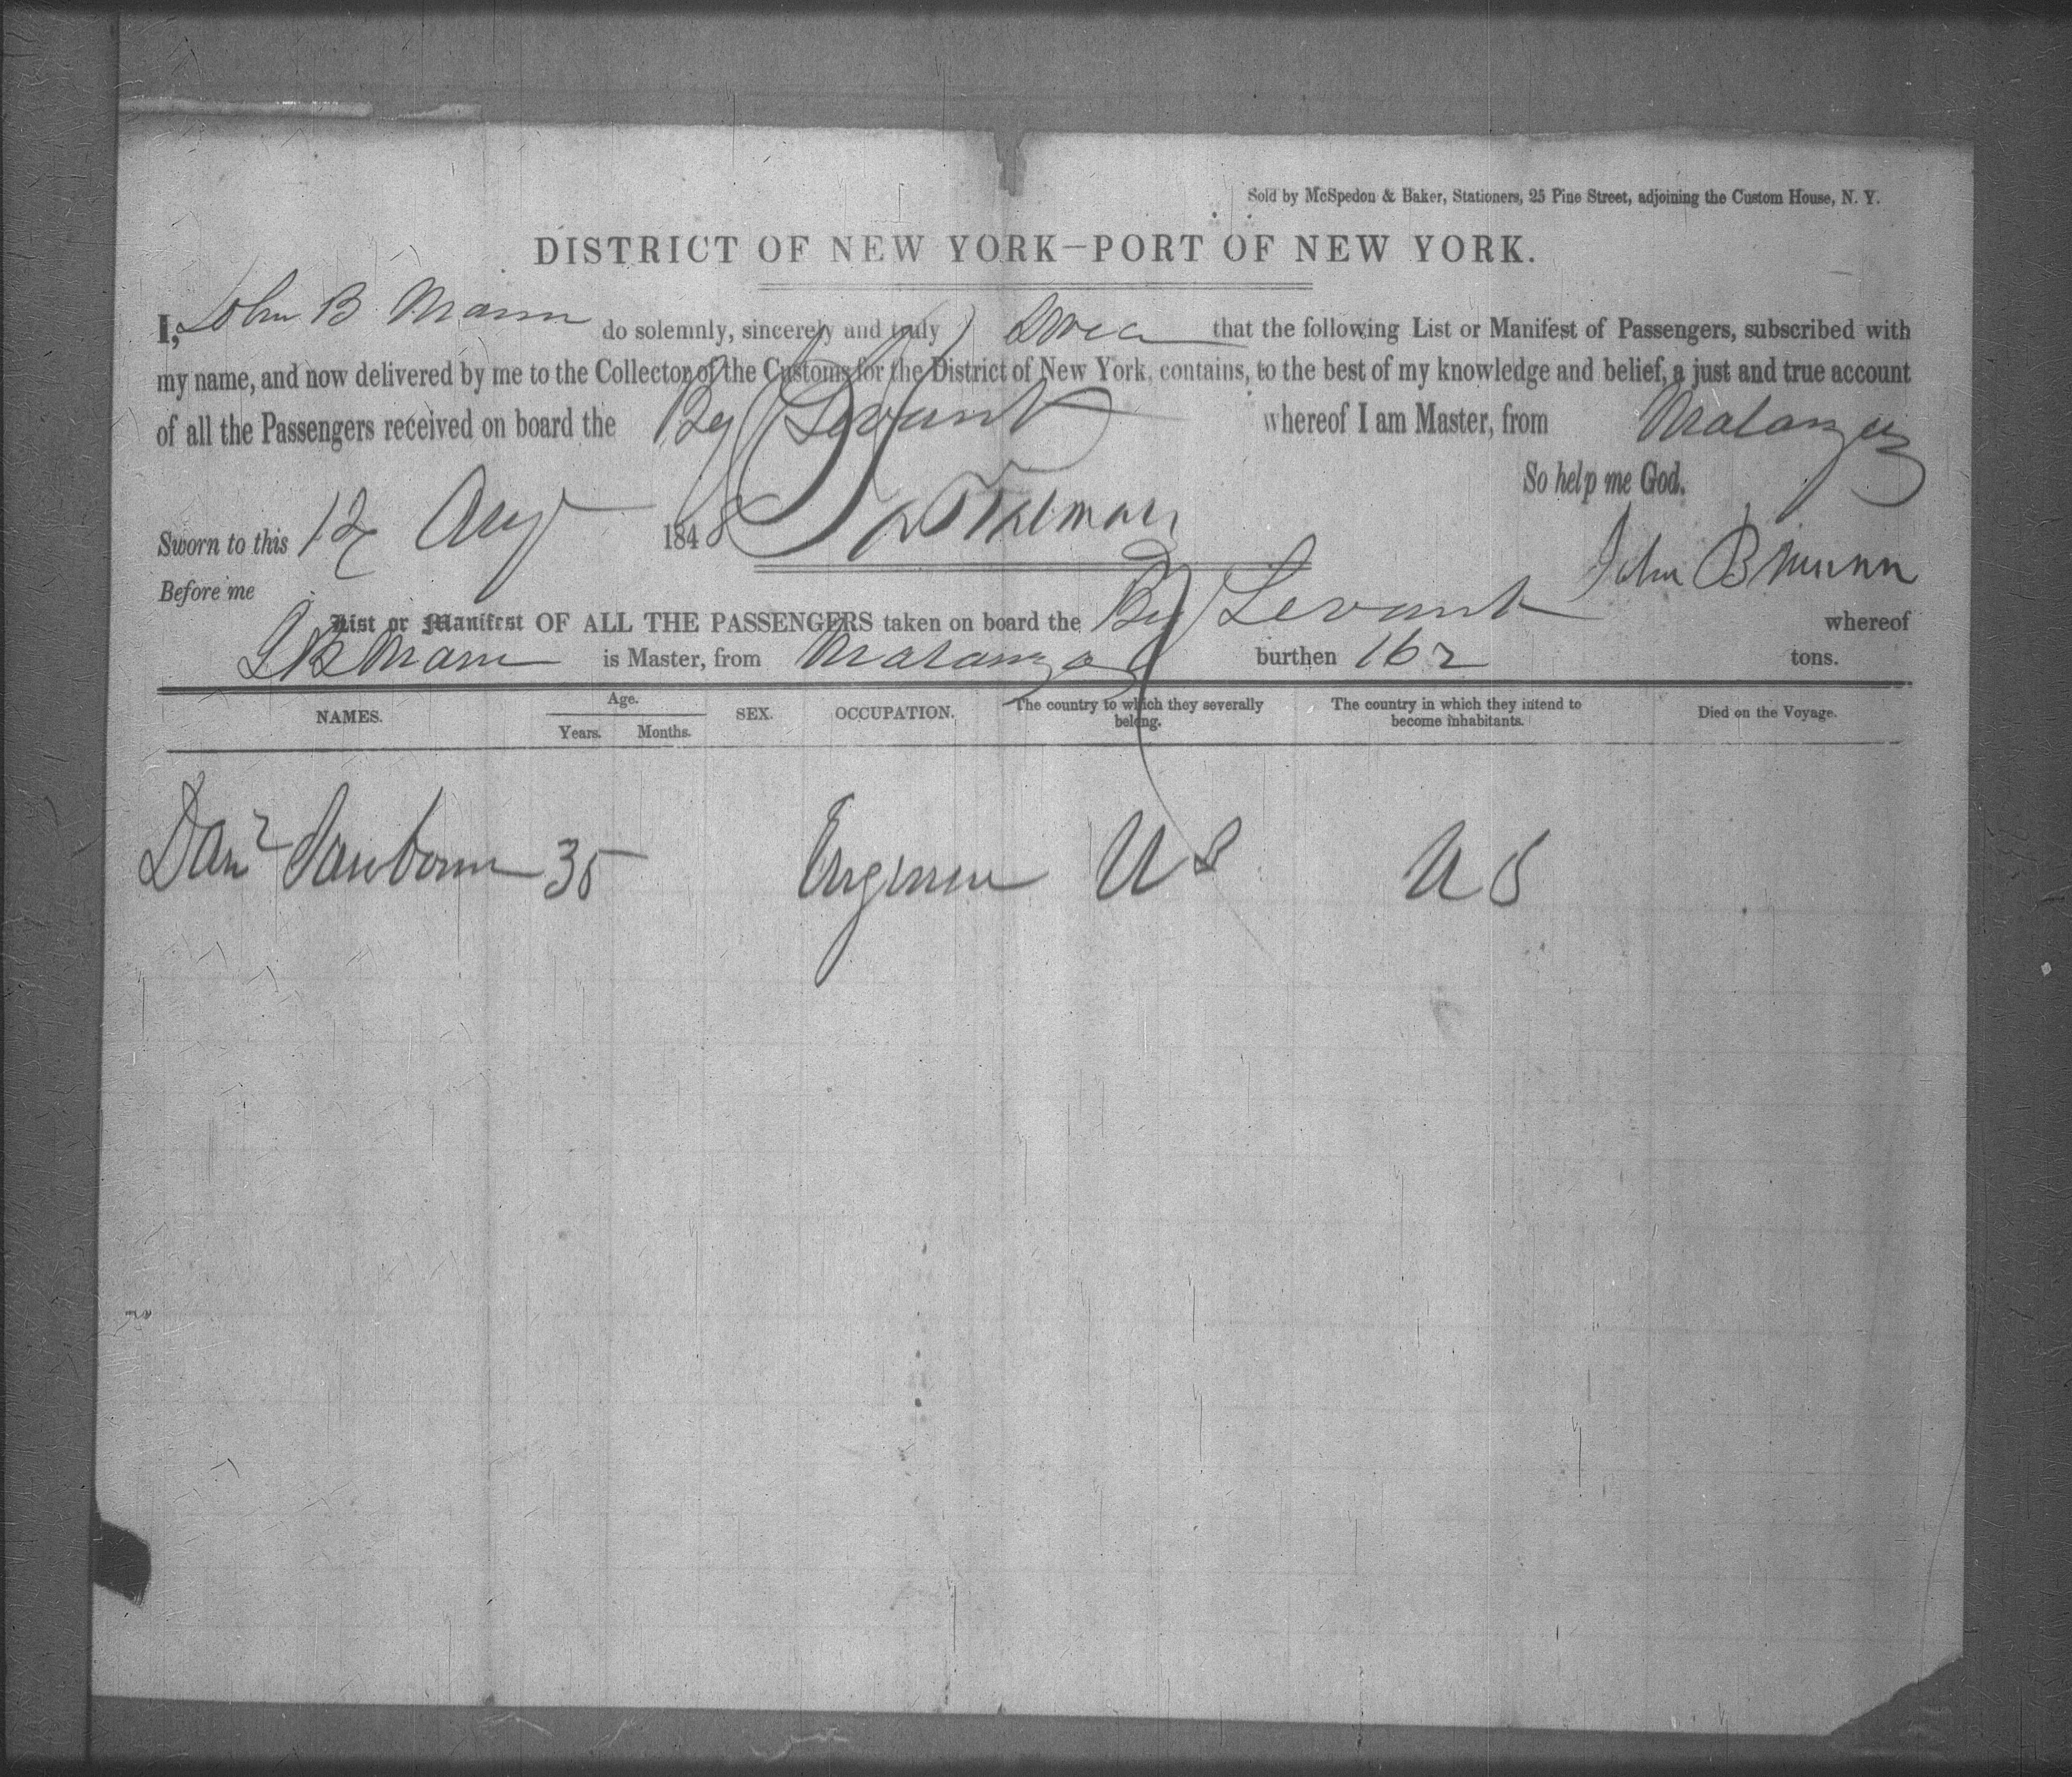 Sold by McSpedon & Baker, Stationers, 25 Pine Street, adjoining the Custom House, N. Y.
DISTRICT OF NEW YORK—PORT OF NEW YORK.
I, John B Mann do solemnly, sincerely and truly swear that the following List or Manifest of Passengers, subscribed with
my name, and now delivered by me to the Collector of the Customs for the District of New York, contains, to the best of my knowledge and belief, a just and true account
of all the Passengers received on board the Bg Levant whereof I am Master, from Matanzas
So help me God.
Sworn to this 12 Aug 1848
John B Mann
Before me
List or Manifest OF ALL THE PASSENGERS taken on board the Bg Levant whereof
J B Mann is Master, from Matanzas burthen 162 tons.
NAMES. Age. Years. Months. SEX. OCCUPATION. The country to which they severally belong. The country in which they intend to become inhabitants. Died on the Voyage.
Danl Sanborn 35 Engineer U S U S